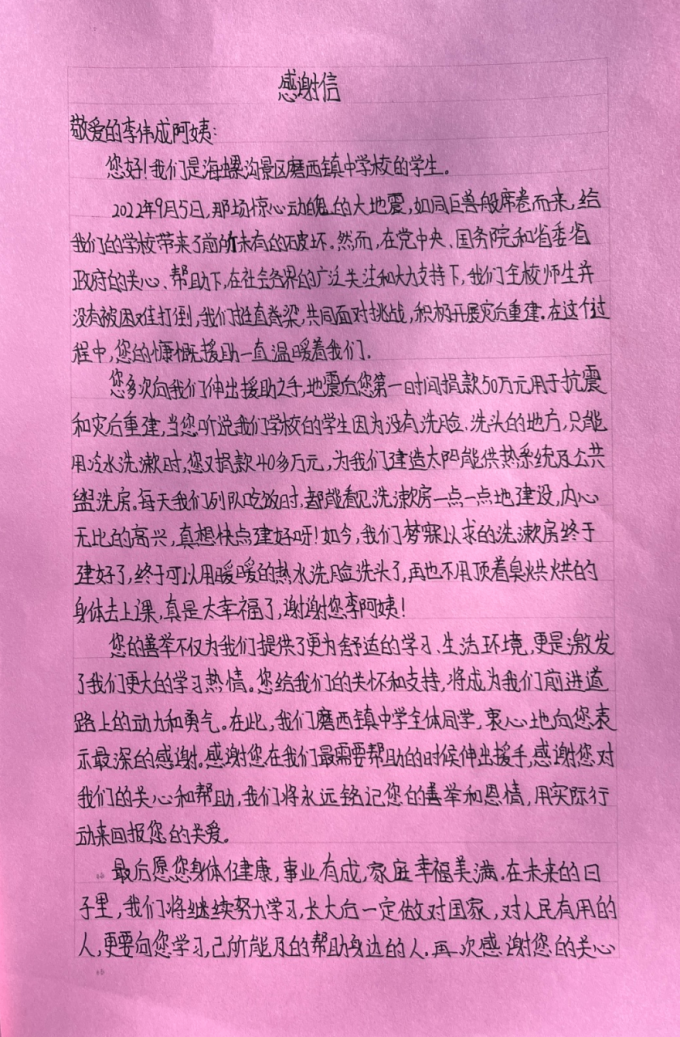 感谢信
敬爱的李伟成阿姨:
您好!我们是海螺沟景区磨西镇中学校的学生。
2022年9月5日,那场惊心动魄的大地震,如同巨兽般席卷而来,给
我们的学校带来了前所未有的破坏.然而,在党中央、国务院和省委省
政府的关心、帮助下,在社会各界的广泛关注和大力支持下,我们全校师生并
没有被困难打倒,我们挺直脊梁,共同面对挑战,积极开展灾后重建.在这个过
程中,您的慷慨援助一直温暖着我们.
您多次向我们伸出援助之手,地震后您第一时间捐款50万元用于抗震
和灾后重建,当您听说我们学校的学生因为没有洗脸、洗头的地方,只能
用冷水洗漱时,您又捐款40多万元,为我们建造太阳能供热系统及公共
盥洗房.每天我们列队吃饭时,都能看见洗漱房一点一点地建设,内心
无比的高兴,真想快点建好呀!如今,我们梦寐以求的洗漱房终于
建好了,终于可以用暖暖的热水洗脸洗头了,再也不用顶着臭烘烘的
身体去上课,真是太幸福了,谢谢您李阿姨!
您的善举不仅为我们提供了更为舒适的学习、生活环境,更是激发
了我们更大的学习热情。您给我们的关怀和支持,将成为我们前进道
路上的动力和勇气。在此,我们磨西镇中学全体同学,衷心地向您表
示最深的感谢.感谢您在我们最需要帮助的时候伸出援手,感谢您对
我们的关心和帮助,我们将永远铭记您的善举和恩情,用实际行
动来回报您的关爱。
最后愿您身体健康,事业有成,家庭幸福美满.在未来的日
子里,我们将继续努力学习,长大后一定做对国家,对人民有用的
人,更要向您学习,己所能及的帮助身边的人.再次感谢您的关心